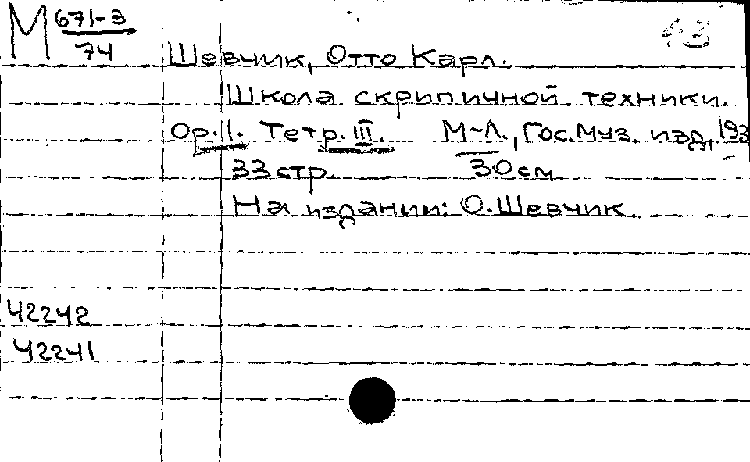 М 671-3
74
Шевчик, Отто Карл.
Школа скрипичной техники.
Ор. II. Тетр. III. М-Л., Гос. муз. изд, 193
33 стр. 30 см
На издании: О. Шевчик
42242
42241